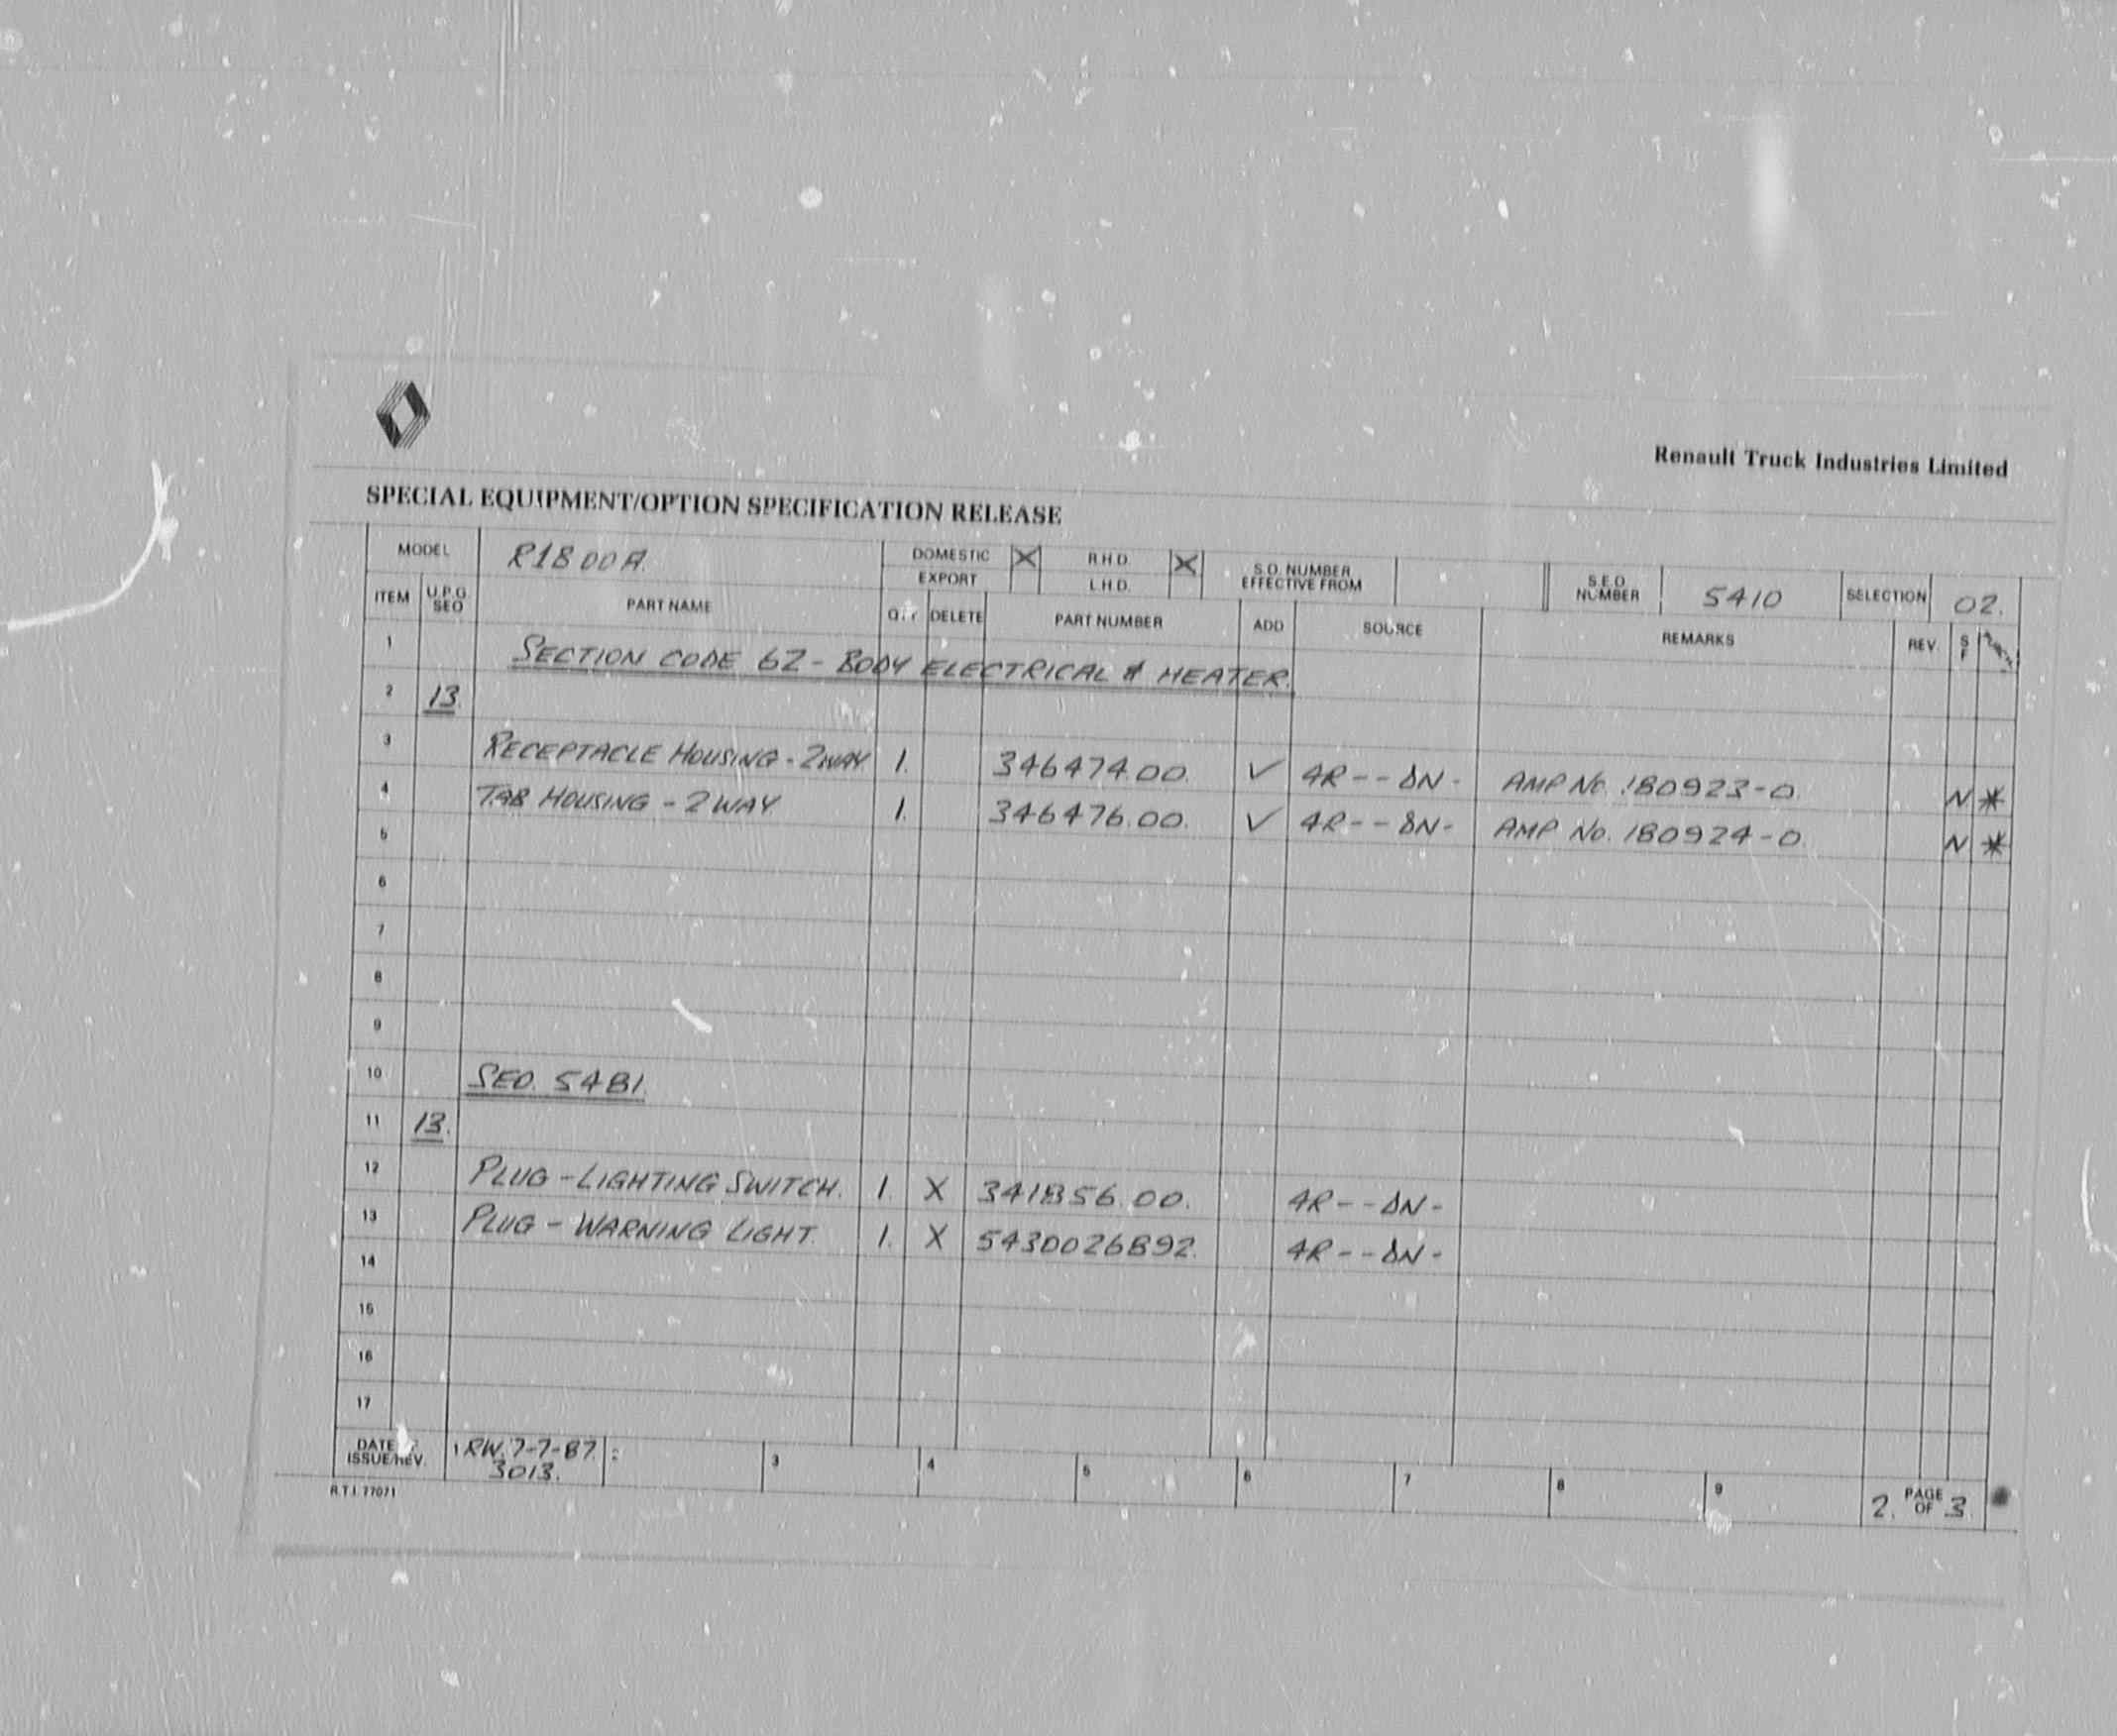 Renault Truck Industries Limited
SPECIAL EQUIPMENT/OPTION SPECIFICATION RELEASE
MODEL R1800A. DOMESTIC X R.H.D. X S.O. NUMBER EFFECTIVE FROM S.E.O. NUMBER 5410 SELECTION 02.
EXPORT L.H.D.
ITEM U.P.G. SEO PART NAME QTY DELETE PART NUMBER ADD SOURCE REMARKS REV S F
1 SECTION CODE 62 - BODY ELECTRICAL & HEATER.
2 13.
3 RECEPTACLE HOUSING - 2WAY 1. 346474.00. ✓ 4R-- N- AMP No. 180923-0. N *
4 TAB HOUSING - 2 WAY. 1. 346476.00. ✓ 4R-- N- AMP No. 180924-0. N *
5
6
7
8
9
10 SEO. 5481.
11 13.
12 PLUG - LIGHTING SWITCH. 1. X 341856.00. 4R-- N-
13 PLUG - WARNING LIGHT. 1. X 5430026892. 4R-- N-
14
15
16
17
DATE ISSUE/REV. 1 RW. 7-7-87. 3 4 5 6 7 8 9 2. PAGE OF 3.
3013.
R.T.I. 77071